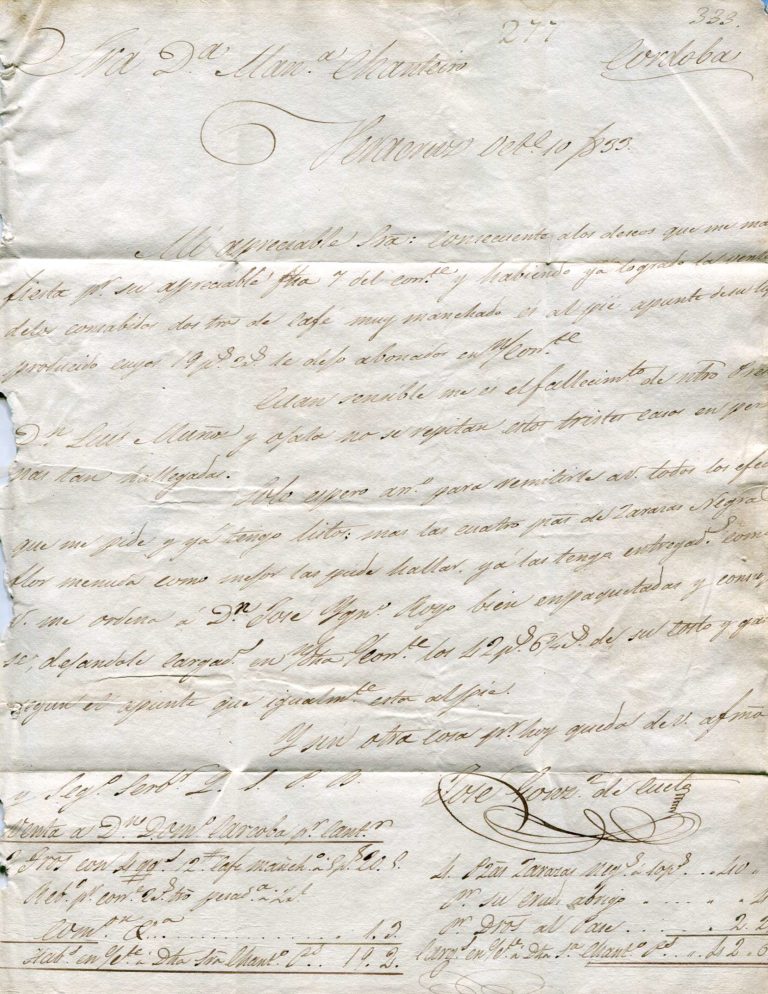 277
333.
Sra Dª Manª Chanteiro Cordoba
Veracruz Octe 10 1833.
Mi apreciable Sra: consecuente alos deseos que me ma
fiesta pr. su apreciable fha 7 del corte y habiendo ya logrado la ven
delos consabidos dos tros de Café muy manchado es al pie apunte de su
producido cuyos 19 ps. 2 rs. le dejo abonados en n/ corte
Cuan sensible me es el fallecimto de ntro
Dn Luis Muños y ojala no se repitan estos tristes casos en per
nas tan hallegadas.
Solo espero arro para remitirle a V. todos los efec
que me pide y ya tengo listos; mas las cuatro pzas de Zarazas Negras
flor menuda como mejor las pude hallar. ya las tengo entregads como
V. me ordena á Dn Jose Ygno Royo bien enpaquetadas y
se, dejandole cargads en n/ corte los 42 ps. 6 rs. de su costo y ga
segun el apunte que igualmte esta al pie.
Y sin otra cosa pr. hoy queda de V. afmo
y Sego Serbr Q. S. P. B.
Jose Gonzz de Cueto
Venta a Dn Domo Carcoba pr. Cantr
2 Tros con 4 qqs 2 Café manchº á 5 ps. 20.
Reb.
Comon 1.3.
Habº en Cte á Dha Sra Chantº Ps. 19.2.
4. Pzas Zarazas Negs. á 10 ps. .. 40
Pr. su abrigo
Pr. Dros al Pase .. 2.2
Cargs en Cte á Dha Sa Chantº Ps. .. 42.6